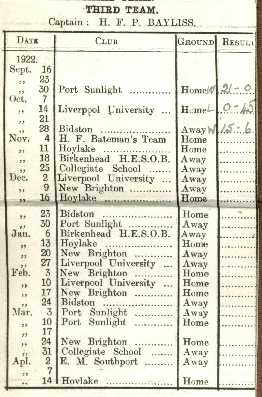 THIRD TEAM.
Captain : H. F. P. BAYLISS.
DATE CLUB GROUND RESULT
1922.
Sept. 16
„ 23
„ 30 Port Sunlight ... Home W 21-0
Oct. 7
„ 14 Liverpool University ... Home L 0-45
„ 21
„ 28 Bidston ... Away W 15-6
Nov. 4 H. F. Bateman's Team Home
„ 11 Hoylake ... Home
„ 18 Birkenhead H.E.S.O.B. Away
„ 25 Collegiate School ... Away
Dec. 2 Liverpool University ... Away
„ 9 New Brighton ... Away
„ 16 Hoylake ... Home
„ 23 Bidston ... Home
„ 30 Port Sunlight ... Away
Jan. 6 Birkenhead H.E.S.O.B. Away
„ 13 Hoylake ... Home
„ 20 New Brighton ... Away
„ 27 Liverpool University ... Away
Feb. 3 New Brighton ... Home
„ 10 Liverpool University ... Home
„ 17 New Brighton ... Home
„ 24 Bidston ... Away
Mar. 3 Port Sunlight ... Away
„ 10 Port Sunlight ... Home
„ 17
„ 24 New Brighton ... Home
„ 31 Collegiate School ... Away
Apl. 2 E. M. Southport ... Away
„ 7
„ 14 Hoylake ... Home